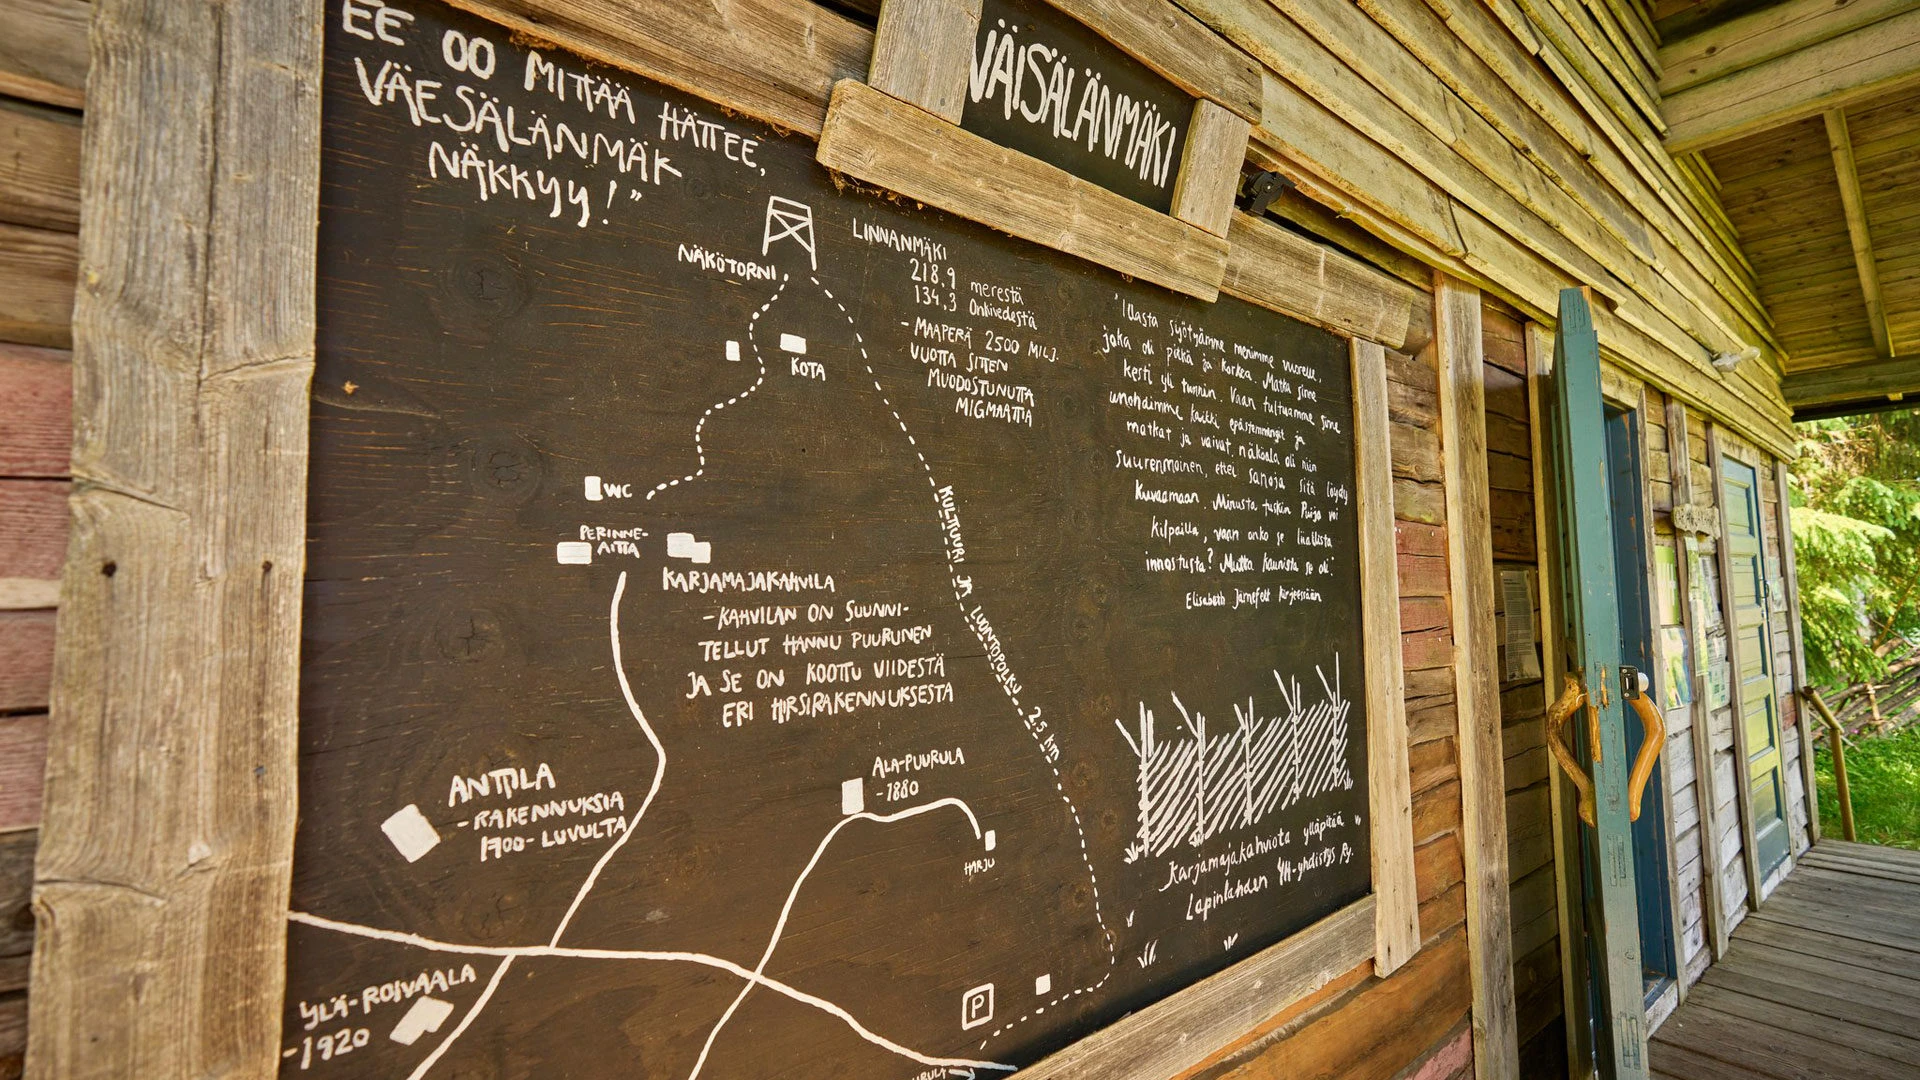 EE OO MITTÄÄ HÄTTEE,
VÄESÄLÄNMÄK
NÄKKYY!"
VÄISÄLÄNMÄKI
NÄKÖTORNI
LINNANMÄKI
218.9 merestä
134,3 Onkivedestä
- MAAPERÄ 2500 MILJ.
VUOTTA SITTEN
MUODOSTUNUTTA
MIGMAATTIA
KOTA
"Illasta syötyämme menimme vuorelle,
joka oli pitkä ja korkea. Matka sinne
kesti yli tunnin. Vaan tultuamme sinne
unohdimme kaikki epäsiemmängit ja
matkat ja vaivat, näköala oli niin
suurenmoinen, ettei sanoja sitä löydy
kuvaamaan. Minusta tuskin Puijo voi
kilpailla, vaan onko se liiallista
innostusta? Mutta kaunista se oli."
Elisabeth Järnefelt kirjeessään
WC
PERINNE-
AITTA
KARJAMAJAKAHVILA
- KAHVILAN ON SUUNNI-
TELLUT HANNU PUURUNEN
JA SE ON KOOTTU VIIDESTÄ
ERI HIRSIRAKENNUKSESTA
KULTTUURI JA LUONTOPOLKU 2,5 km
ANTTILA
- RAKENNUKSIA
1700-LUVULTA
ALA-PUURULA
- 1880
HARJU
Karjamajakahviota ylläpitää
Lapinlahden 4H-yhdistys Ry.
YLÄ-ROIVAALA
- 1920
P